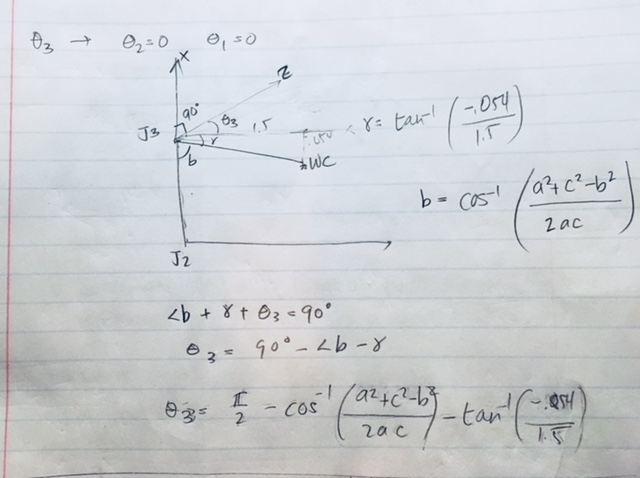 θ3 → θ2=0 θ1=0
X
Z
90°
θ3
J3
1.5
.054
r
r= tan⁻¹ (-.054/1.5)
b
WC
b = cos⁻¹ (a²+c²-b²/2ac)
J2
∠b + r + θ3 = 90°
θ3 = 90° - ∠b - r
θ3= π/2 - cos⁻¹ (a²+c²-b²/2ac) - tan⁻¹ (-.054/1.5)